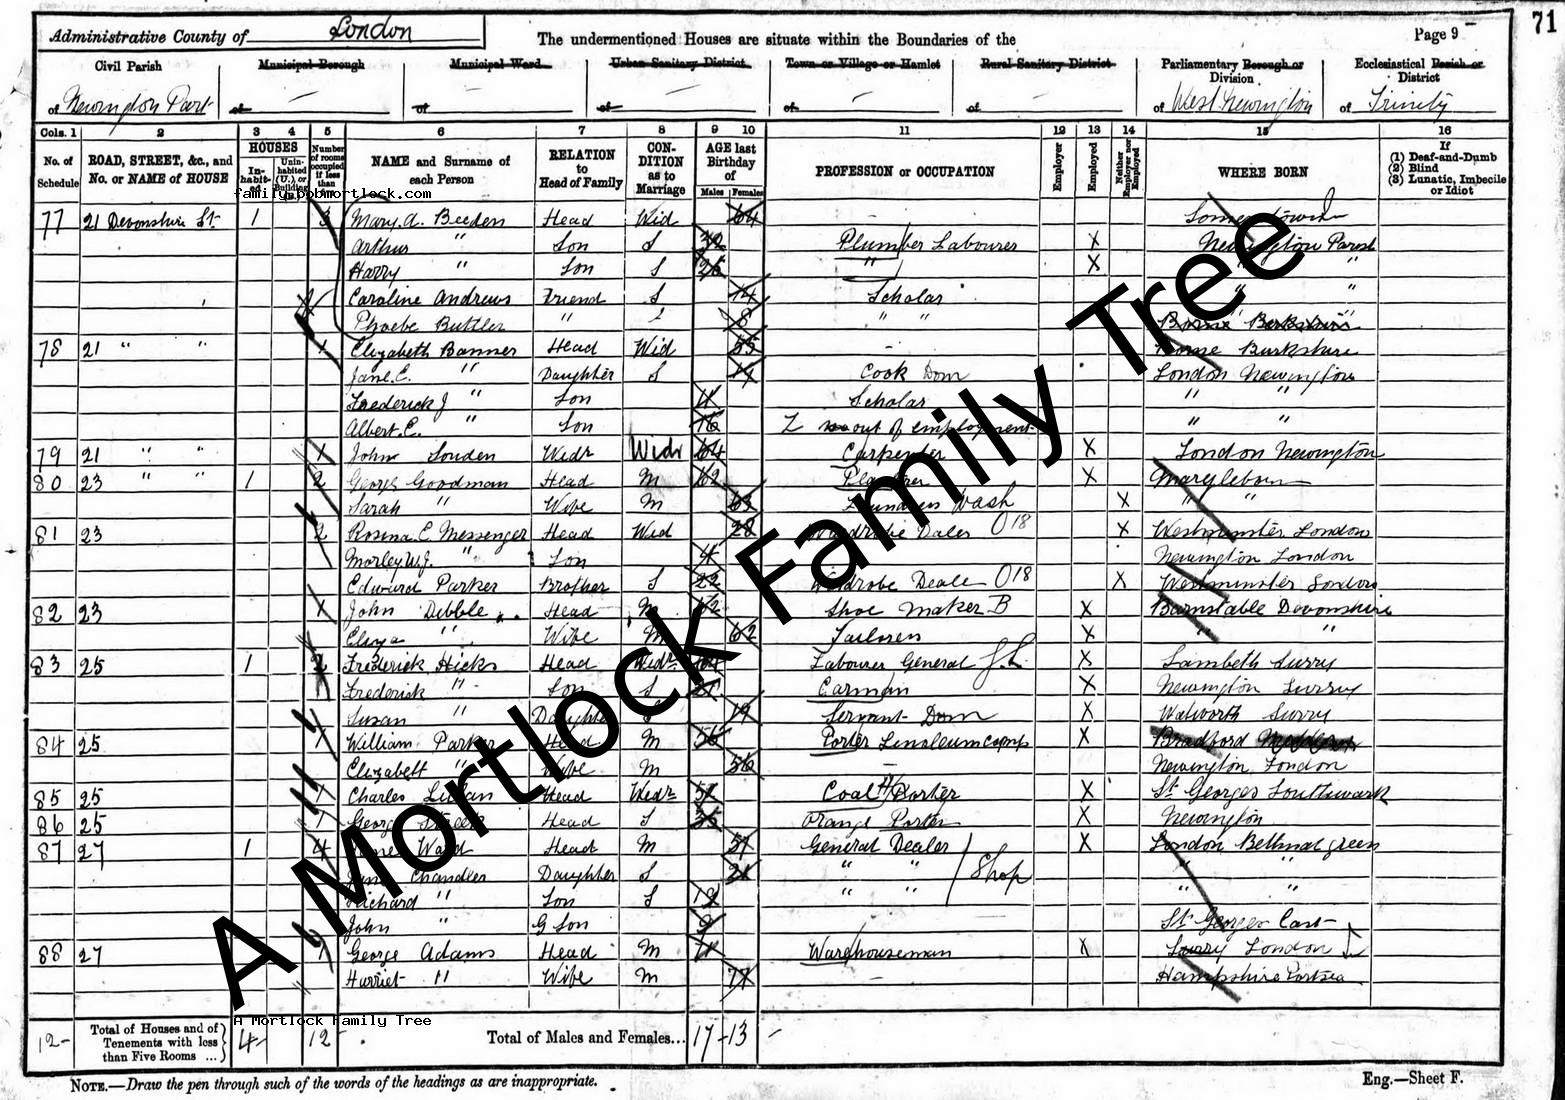 71
Administrative County of London
The undermentioned Houses are situate within the Boundaries of the
Page 9
Civil Parish
Municipal Borough
Municipal Ward
Urban Sanitary District
Town or Village or Hamlet
Rural Sanitary District
Parliamentary Borough or Division
Ecclesiastical Parish or District
of Newington Part
of
of
of
of
of
of West Newington
of Trinity
Cols. 1 2 3 4 5 6 7 8 9 10 11 12 13 14 15 16
No. of Schedule
ROAD, STREET, &c., and No. or NAME of HOUSE
HOUSES
In-habit-ed
Unin-habited (U.) or Building
Number of rooms occupied if less than
NAME and Surname of each Person
RELATION to Head of Family
CON-DITION as to Marriage
AGE last Birthday of
Males Females
PROFESSION or OCCUPATION
Employer
Employed
Neither Employer nor Employed
WHERE BORN
If (1) Deaf-and-Dumb (2) Blind (3) Lunatic, Imbecile or Idiot
family.bobmortlock.com
77 21 Devonshire St. 1 3 Mary. A. Beeden Head Wid 64
Arthur " Son S 32 Plumber Labourer X Newington Parish
Harry " Son S 26 " X "
Caroline Andrews Friend S 14 Scholar " "
Phoebe Buttler " 8 " " Berkshire
78 21 " " 1 Elizabeth Banner Head Wid 55 Burkshire
Jane. E. " Daughter S 17 Cook Dom London Newington
Frederick J " Son 11 Scholar " "
Albert. E. " Son 16 out of employment " "
79 21 " " 1 John Souden Widr Widr 64 Carpenter X London Newington
80 23 " " 1 2 George Goodman Head M 62 X Marylebone
Sarah " Wife M 63 Wash X " "
81 23 2 Rosina E Messenger Head Wid 28 Wardrobe Dealer 018 X Westminster London
Morley W. J. " Son 4 Newington London
Edward Parker Brother S 22 Wardrobe Deale 018 X Westminster London
82 23 1 John Dibble Head M 62 Shoe Maker B X Barnstable Devonshire
Eliza " Wife M 62 Tailoress X " "
83 25 1 2 Frederick Hicks Head Widr 64 Labourer General G.L. X Lambeth Surry
Frederick " Son S 21 Carman X Newington Surrey
Susan " Daughter S 19 Servant Dom X Walworth Surry
84 25 1 William Parker Head M 56 Porter Linoleum comp X Bradford
Elizabeth " Wife M 56 Newington London
85 25 1 Charles Head Widr 51 Coal Porter X St Georges Southwark
86 25 1 George Head S 35 Orange Porter X Newington
87 27 1 4 Jane Ward Head M 51 General Dealer X London Bethnal green
Chandler Daughter S 21 " " Shop " "
Richard " Son S 19 " " " "
John " G Son 9 St Georges East
88 27 1 George Adams Head M 71 Warehouseman X Surry London
Harriet " Wife M 77 Hampshire Portsea
A Mortlock Family Tree
A Mortlock Family Tree
12 Total of Houses and of Tenements with less than Five Rooms ... 4 12 Total of Males and Females... 17 13
NOTE.—Draw the pen through such of the words of the headings as are inappropriate.
Eng.—Sheet F.